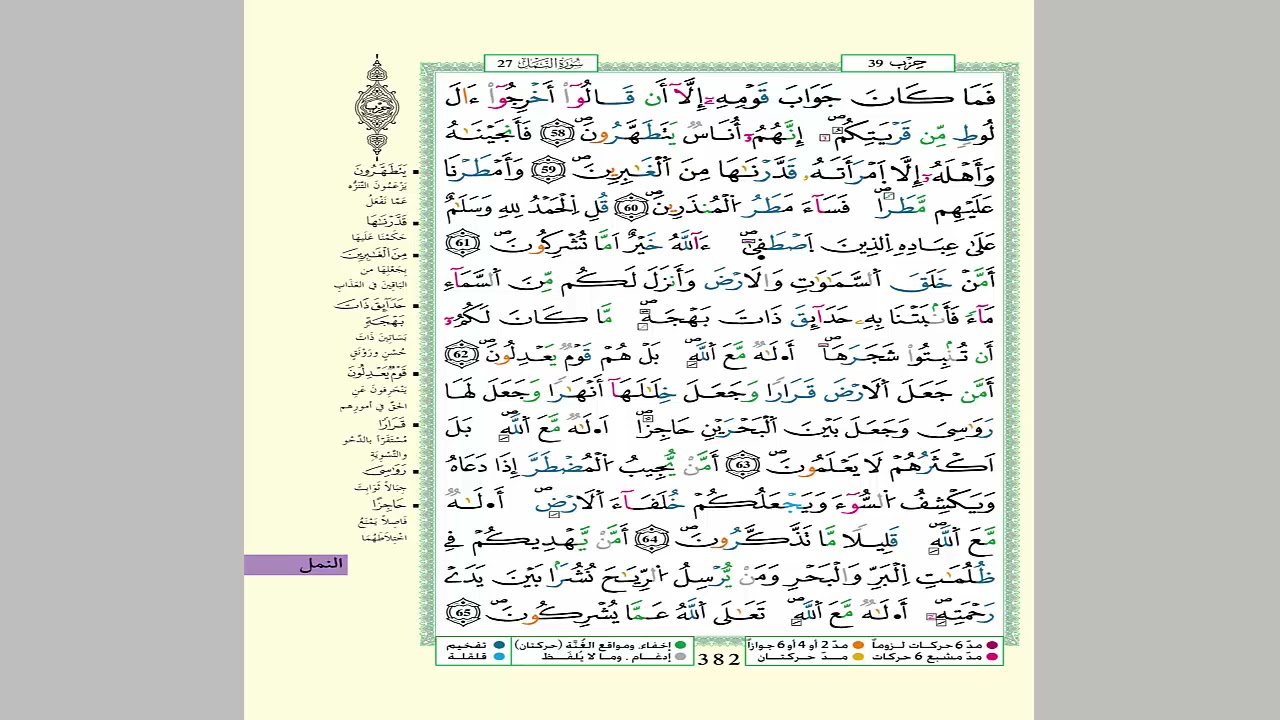 حِزْب 39
سُورَةُ النَّمْلِ 27
فَمَا كَانَ جَوَابَ قَوْمِهِۦٓ إِلَّآ أَن قَالُوٓاْ أَخْرِجُوٓاْ ءَالَ
لُوطٖ مِّن قَرْيَتِكُمُۥٓۖ إِنَّهُمُۥٓ أُنَاسٞ يَتَطَهَّرُونَۖ 58 فَأَنجَيْنَٰهُ
وَأَهْلَهُۥٓ إِلَّا اَ۪مْرَأَتَهُۥ قَدَّرْنَٰهَا مِنَ اَلْغَٰبِرِينَۖ 59 وَأَمْطَرْنَا
عَلَيْهِم مَّطَراٗۖ فَسَآءَ مَطَرُ اُ۬لْمُنذَرِينَۖ 60 قُلِ اِ۬لْحَمْدُ لِلهِ وَسَلَٰمٌ
عَلَىٰ عِبَادِهِ اِ۬لذِينَ اَ۪صْطَف۪ىٰٓۖ ءَآللَّهُ خَيْرٌ اَمَّا تُشْرِكُونَۖ 61
أَمَّنْ خَلَقَ اَ۬لسَّمَٰوَٰتِ وَالَارْضَ وَأَنزَلَ لَكُم مِّنَ اَ۬لسَّمَآءِ
مَآءٗ فَأَنۢبَتْنَا بِهِۦ حَدَآئِقَ ذَاتَ بَهْجَةٖۖ مَّا كَانَ لَكُمُۥٓ
أَن تُنۢبِتُواْ شَجَرَهَاۖ أَ۟لَٰهٞ مَّعَ اَ۬للَّهِۖ بَلْ هُمْ قَوْمٞ يَعْدِلُونَۖ 62
أَمَّن جَعَلَ اَ۬لَارْضَ قَرَاراٗ وَجَعَلَ خِلَٰلَهَآ أَنْهَٰراٗ وَجَعَلَ لَهَا
رَوَٰسِيَ وَجَعَلَ بَيْنَ اَ۬لْبَحْرَيْنِ حَاجِزاًۖ اَ۟لَٰهٞ مَّعَ اَ۬للَّهِۖ بَلَ
اَكْثَرُهُمْ لَا يَعْلَمُونَۖ 63 أَمَّنْ يُّجِيبُ اُ۬لْمُضْطَرَّ إِذَا دَعَاهُ
وَيَكْشِفُ اُ۬لسُّوٓءَ وَيَجْعَلُكُمْ خُلَفَآءَ اَ۬لَارْضِۖ أَ۟لَٰهٞ
مَّعَ اَ۬للَّهِۖ قَلِيلاٗ مَّا تَذَّكَّرُونَۖ 64 أَمَّنْ يَّهْدِيكُمْ فِي
ظُلُمَٰتِ اِ۬لْبَرِّ وَالْبَحْرِ وَمَنْ يُّرْسِلُ اُ۬لرِّيَٰحَ نُشُراَۢ بَيْنَ يَدَيْ
رَحْمَتِهِۦٓۖ أَ۟لَٰهٞ مَّعَ اَ۬للَّهِۖ تَعَٰلَى اَ۬للَّهُ عَمَّا يُشْرِكُونَۖ 65
حزب
يَتَطَهَّرُونَ
يَزْعمُونَ التَّنَزُّه
عَمّا نَفْعَلُ
قَدَّرْنَٰهَا
حَكَمْنَا عَلَيها
مِنَ الْغَٰبِرِينَ
بِجَعْلِهَا من
البَاقِين في العَذَابِ
حَدَآئِقَ ذَاتَ
بَهْجَةٍ
بَسَاتِينَ ذَاتَ
حُسْنٍ ورَوْنَقٍ
قَوْمٌ يَعْدِلُونَ
يَنْحَرِفُونَ عَنِ
الحَقّ في أمورِهم
قَرَارًا
مُسْتَقَرّا بالدَّحْوِ
والتَّسْوِيَةِ
رَوَٰسِيَ
جِبَالاً ثَوَابِتَ
حَاجِزًا
فَاصِلاً يَمْنَعُ
اخْتِلاَطَهُمَا
النمل
مدّ 6 حركات لزوماً
مدّ 2 أو 4 أو 6 جوازاً
إخفاء، ومواقع الغُنَّة (حركتان)
تفخيم
مدّ مشبع 6 حركات
مدّ حركتان
إدغام، وما لا يُلفَظ
قلقلة
382